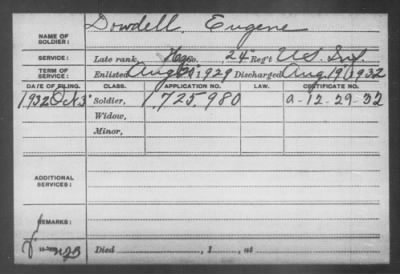 NAME OF SOLDIER: Dowdell, Eugene
SERVICE: Late rank, Hdq. Co., 24" Reg't U.S. Inf.
TERM OF SERVICE: Enlisted Aug 1929 Discharged Aug. 19, 1932
DATE OF FILING. CLASS. APPLICATION NO. LAW. CERTIFICATE NO.
1932 Oct 3" Soldier, 1,725,980 a-12-29-32
Widow,
Minor,
ADDITIONAL SERVICES:
REMARKS:
Died , 1 , at